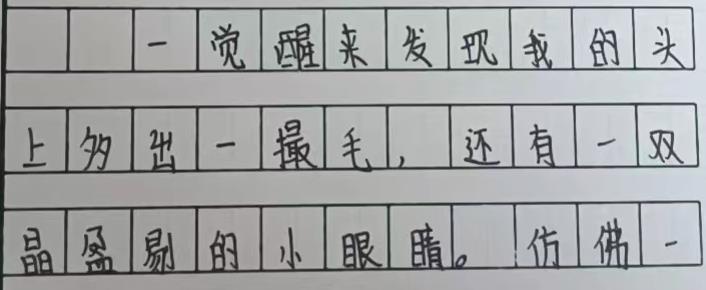 一觉醒来发现我的头
上多出一撮毛，还有一双
晶盈剔的小眼睛。仿佛一